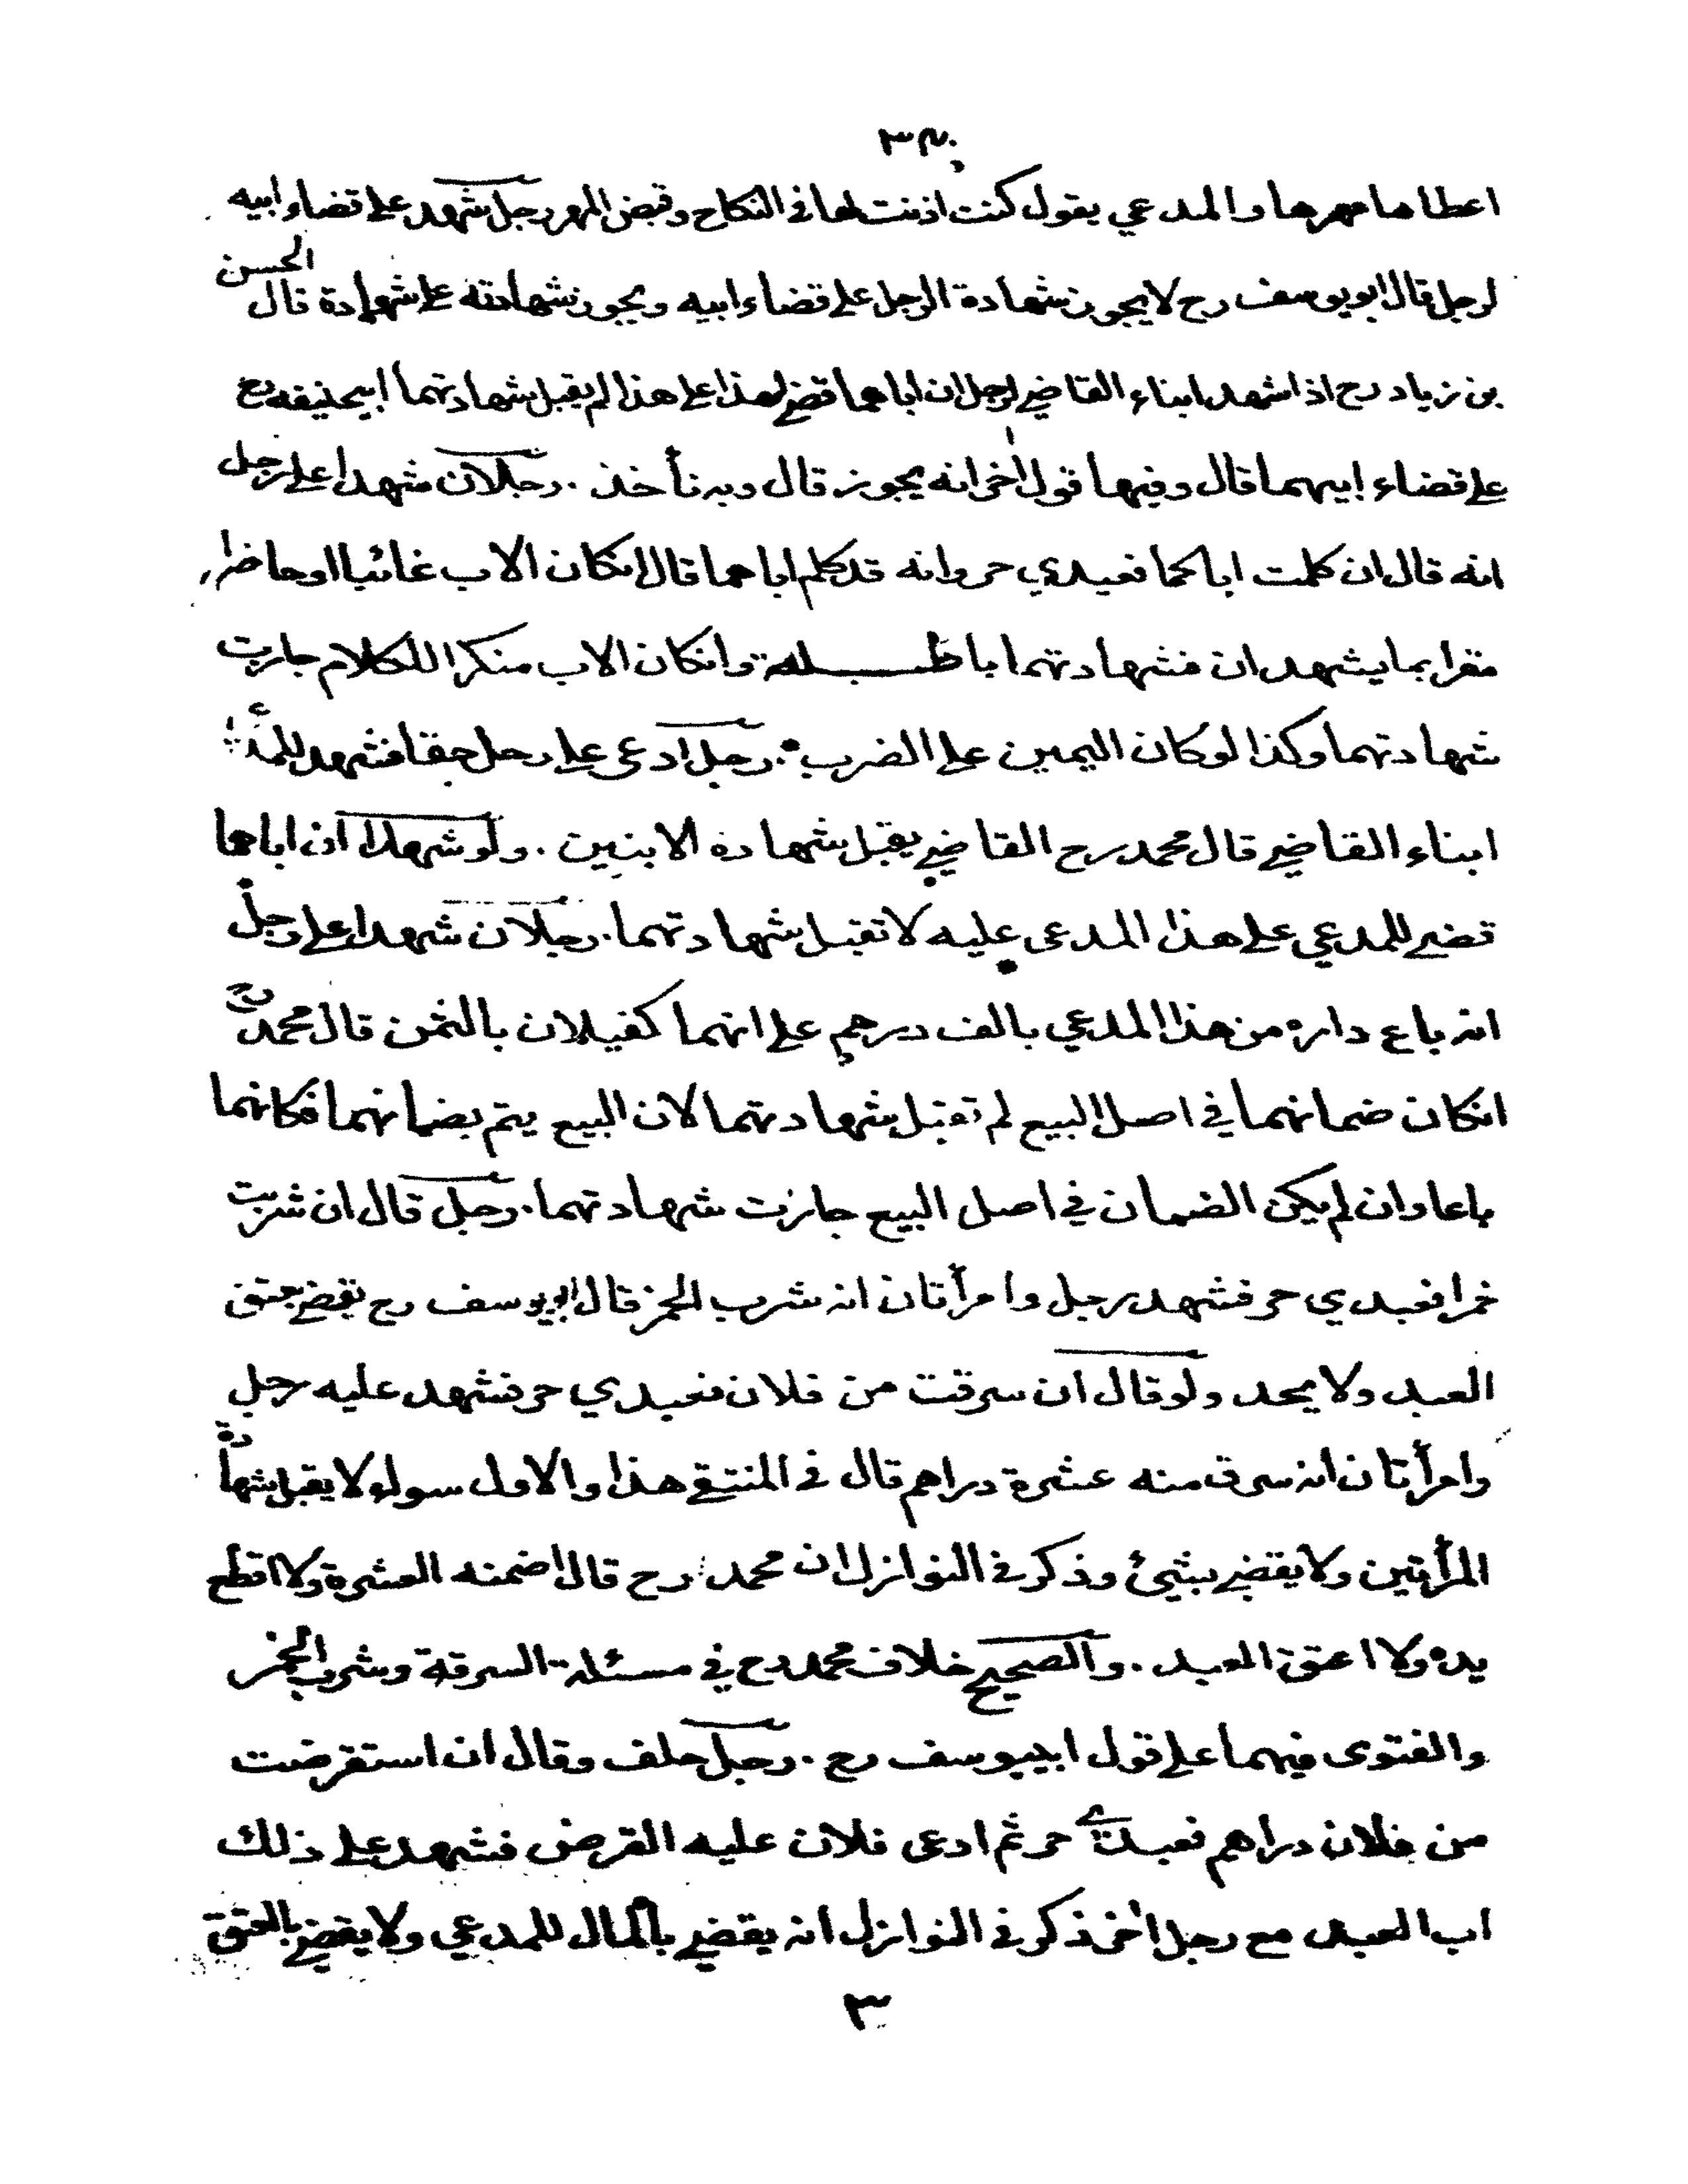 اعطاها مهرها والمدعي يقول كنت اذنت لها في النكاح وقبض المهر رجل شهد على قضاء ابيه
لرجل قال ابو يوسف رح لا يجوز شهادة الرجل على قضاء ابيه ويجوز شهادته على شهادة قال الحسن
بن زياد رح اذا شهد ابناء القاضي لرجل ان اباهما قضى لهذا على هذا لم يقبل شهادتهما
على قضاء ابيهما قال وفيها قول اخر انه يجوز قال وبه نأخذ . رجلان شهدا على رجل
انه قال ان كلمت اباكما فعبدي حر وانه قد كلم اباهما قال انكان الاب غائبا او حاضرا
مقرا بما يشهدان فشهادتهما باطلة وانكان الاب منكرا للكلام جازت
شهادتهما وكذا لوكان اليمين على الضرب . رجل ادعى على رجل حقا فشهد للمدعي
ابناء القاضي قال محمد رح القاضي يقبل شهادة الابنين . ولو شهدا ان اباهما
قضى للمدعي على هذا المدعى عليه لا تقبل شهادتهما . رجلان شهدا على رجل
انه باع داره من هذا المدعي بالف درهم على انهما كفيلان بالثمن قال محمد رح
انكان ضمانهما في اصل البيع لم تقبل شهادتهما لان البيع يتم بضمانهما فكانهما
باعا وان لم يكن الضمان في اصل البيع جازت شهادتهما . رجل قال ان شربت
خمرا فعبدي حر فشهد رجل وامرأتان انه شرب الخمر قال ابو يوسف رح يقضى بعتق
العبد ولا يحد ولو قال ان سرقت من فلان فعبدي حر فشهد عليه رجل
وامرأتان انه سرق منه عشرة دراهم قال في المنتقى هذا والاول سواء لا يقبل شهادة
المرأتين ولا يقضى بشيئ وذكر في النوازل ان محمد رح قال اضمنه العشرة ولا اقطع
يده ولا اعتق العبد . والصحيح خلاف محمد رح في مسئلة السرقة وشرب الخمر
والفتوى فيهما على قول ابييوسف رح . رجل حلف وقال ان استقرضت
من فلان دراهم فعبدي حر ثم ادعى فلان عليه القرض فشهد على ذلك
اب العبد مع رجل اخر ذكر في النوازل انه يقضي بالمال للمدعي ولا يقضي بالعتق
٣